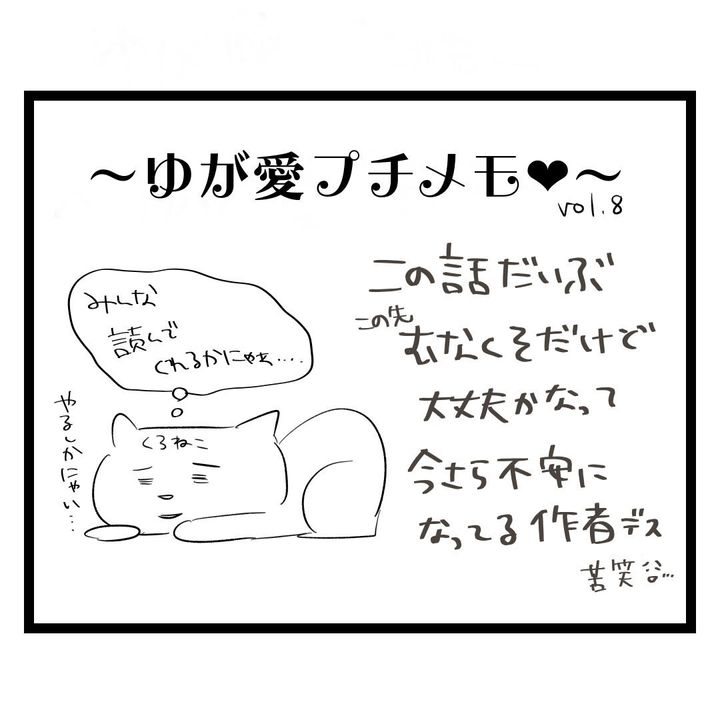 ～ゆが愛プチメモ❤～
vol.8
この話だいぶ
この先
むなくそだけど
大丈夫かなって
今さら不安に
なってる作者デス
苦笑
みんな
読んで
くれるかにゃぁ....
くろねこ
やるしかにゃい...